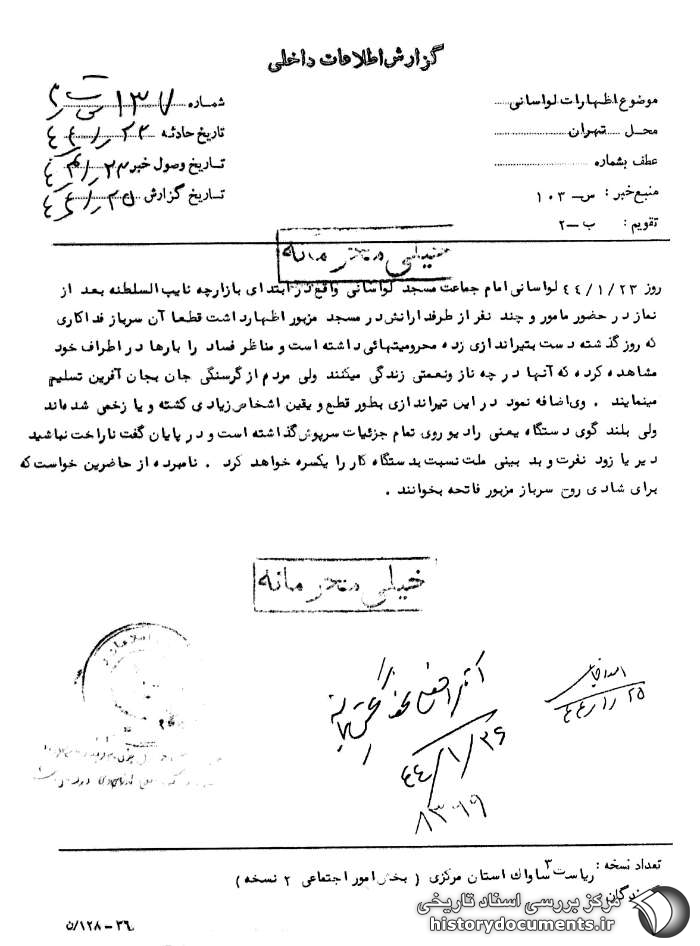 گزارش اطلاعات داخلی
موضوع اظهارات لواسانی
محل تهران
عطف بشماره
منبع خبر : س - ۱۰۳
تقویم : ب - ۲
شماره ۱۳۷
تاریخ حادثه ۴۴/۱/۲۳
تاریخ وصول خبر
تاریخ گزارش ۴۴/۱/۲۵
خیلی محرمانه
روز ۴۴/۱/۲۳ لواسانی امام جماعت مسجد لواسانی واقع در ابتدای بازارچه نایب السلطنه بعد از
نماز در حضور مامور و چند نفر از طرفدارانش در مسجد مزبور اظهار داشت قطعا آن سرباز فداکاری
که روز گذشته دست بتیراندازی زده محرومیتهائی داشته است و مناظر فساد را بارها در اطراف خود
مشاهده کرده که آنها در چه ناز ونعمتی زندگی میکنند ولی مردم از گرسنگی جان بجان آفرین تسلیم
مینمایند . وی اضافه نمود در این تیراندازی بطور قطع و یقین اشخاص زیادی کشته و یا زخمی شده‌اند
ولی بلند گوی دستگاه یعنی رادیو روی تمام جزئیات سرپوش گذاشته است و در پایان گفت ناراحت نباشید
دیر یا زود نفرت و بد بینی ملت نسبت بدستگاه کار را یکسره خواهد کرد . نامبرده از حاضرین خواست که
برای شادی روح سرباز مزبور فاتحه بخوانند .
خیلی محرمانه
۴۴/۱/۲۵
۴۴/۱/۲۶
تعداد نسخه : ۳
ریاست ساواک استان مرکزی ( بخش امور اجتماعی ۲ نسخه )
مرکز بررسی اسناد تاریخی
historydocuments.ir
۳۶ - ۱۲۸/ن